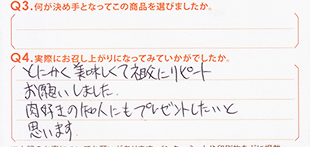 Q3.何が決め手となってこの商品を選びましたか。
Q4.実際にお召し上がりになってみていかがでしたか。
とにかく美味しくて祖父にリピート
お願いしました。
肉好きの知人にもプレゼントしたいと
思います。